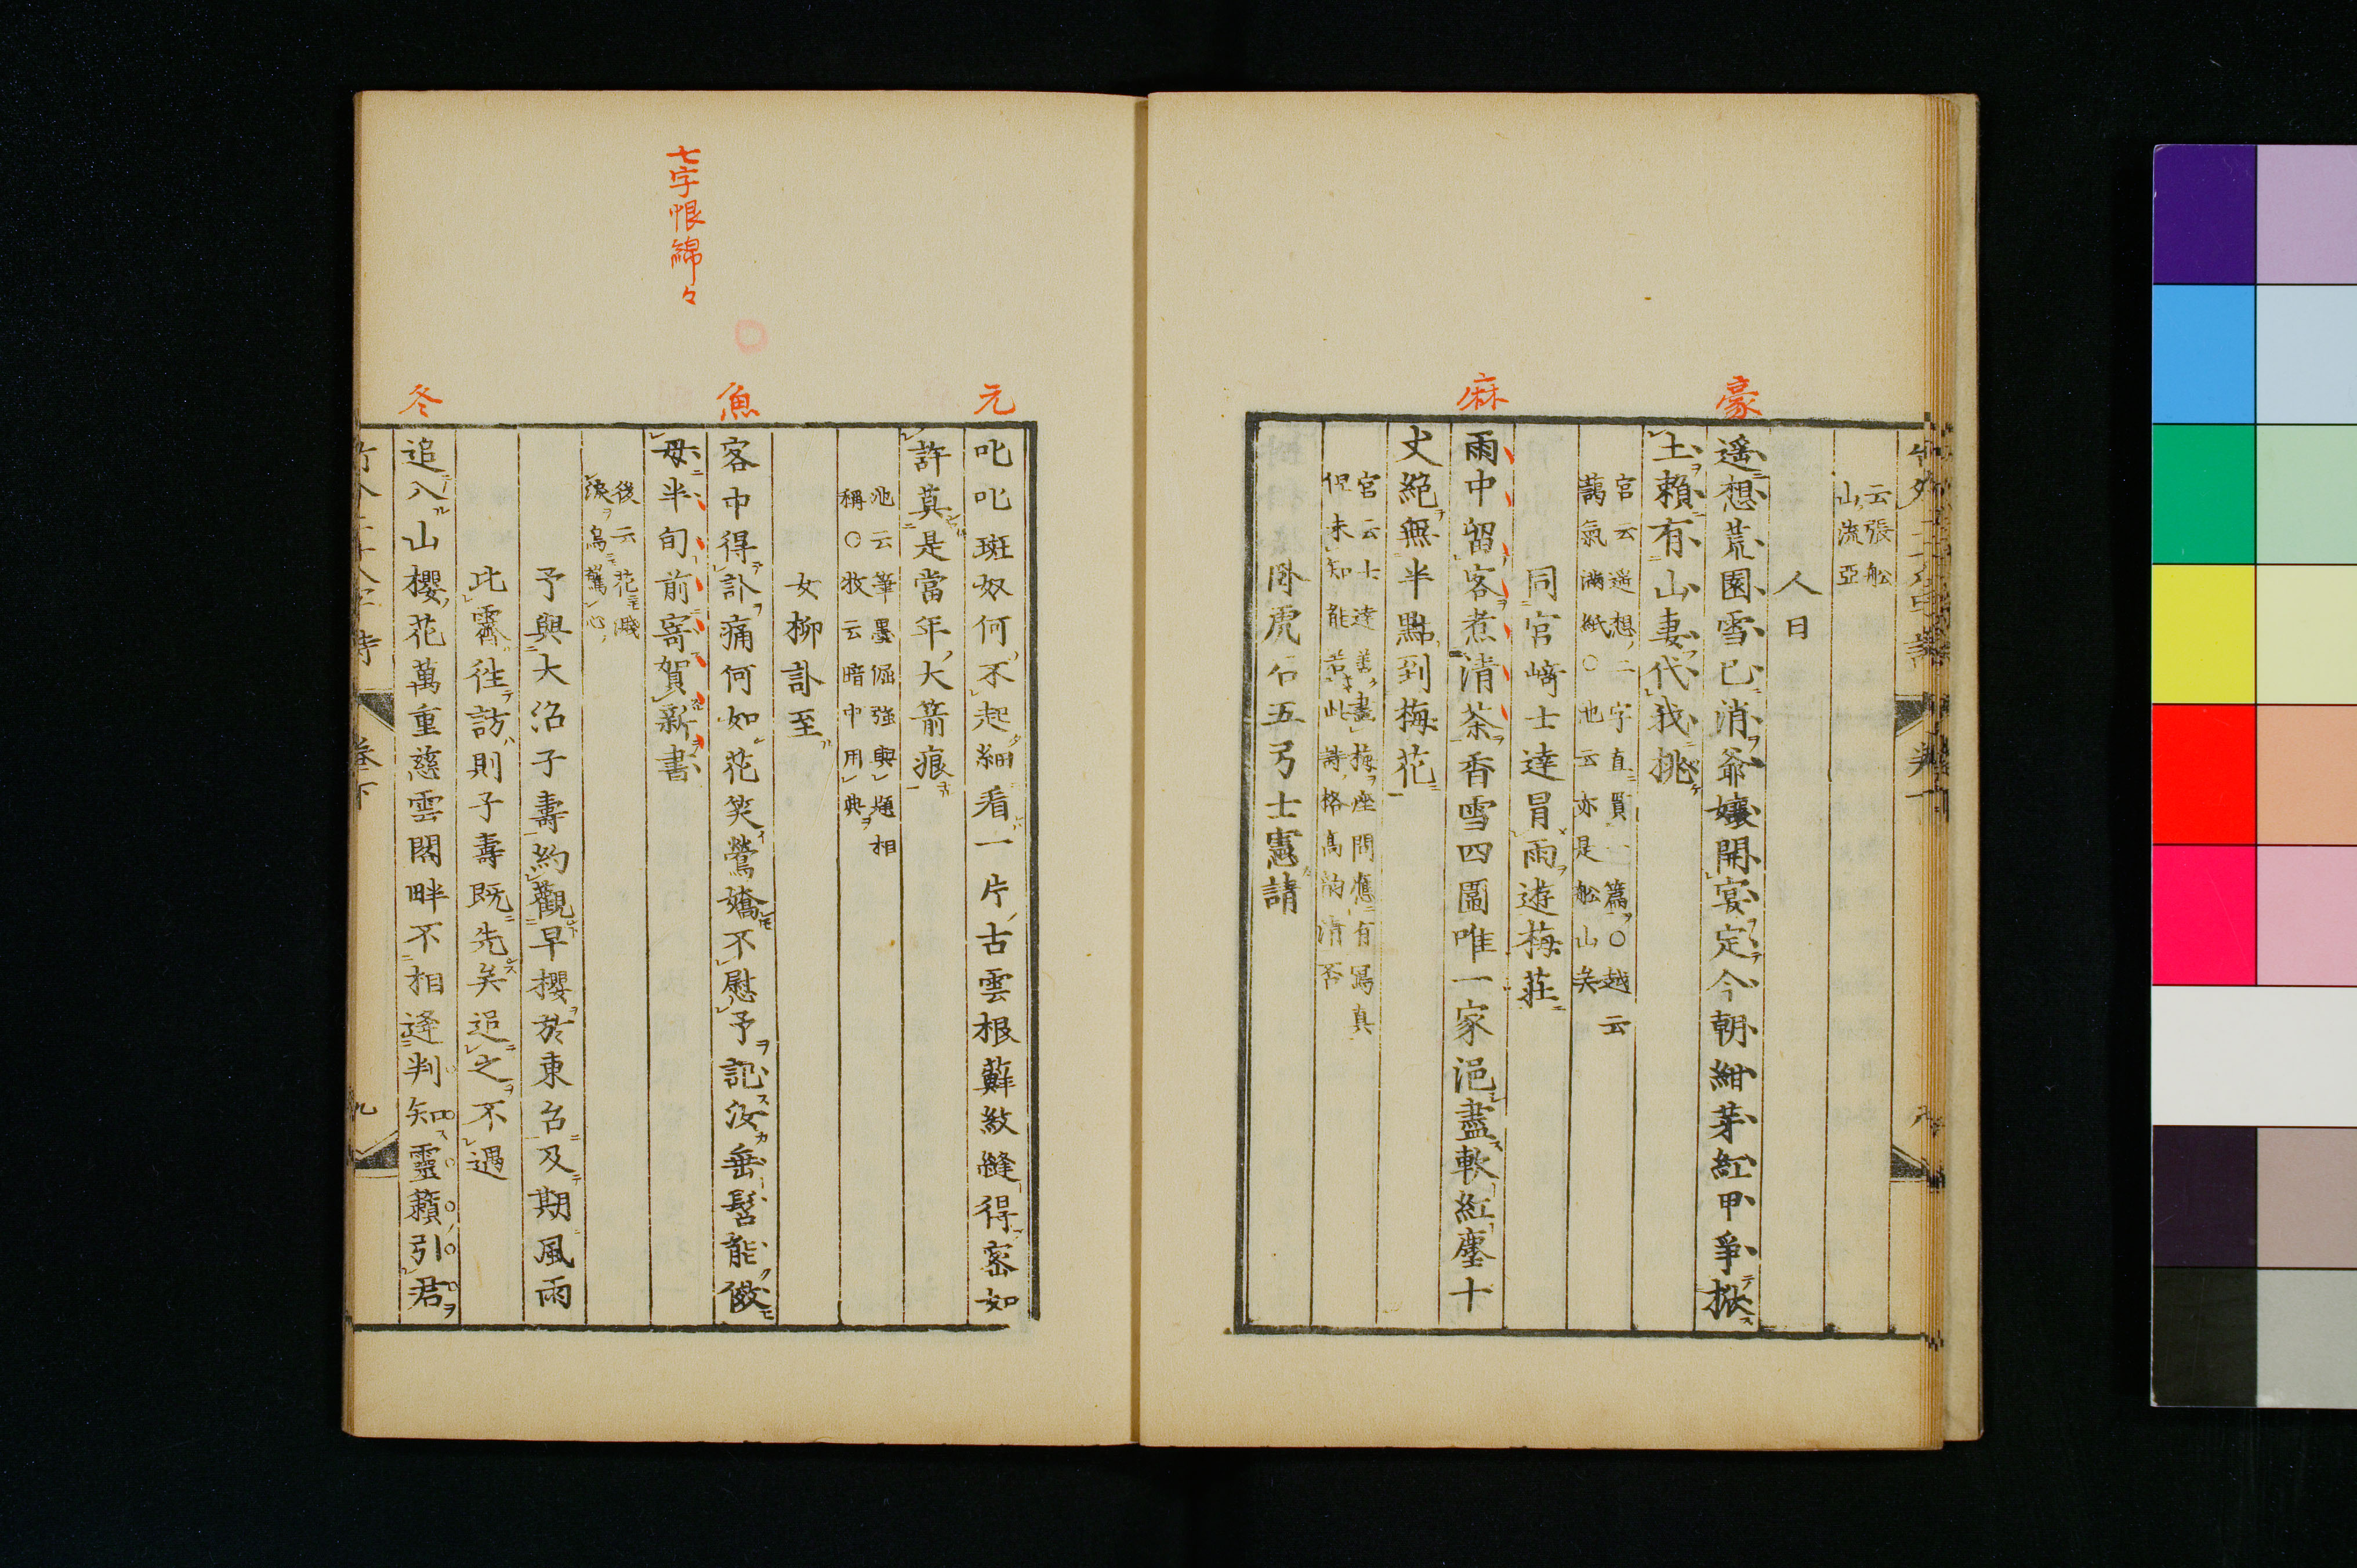 云張船
山流亞
人日
豪
遥想荒園雪已消爺孃開宴定今朝紺芽紅甲爭挑
土賴有山妻代我挑
宮云遥想二字直貫一篇○越云
藹氣滿紙○池云亦是船山矣
同宮﨑士達冒雨遊梅莊
麻
雨中留客煮清茶香雪四圍唯一家浥盡軟紅塵十
丈絕無半點到梅花
宮云士達善畫梅座間應有寫真
但未知能若此詩格高韵清否
卧虎石五弓士憲請
元
叱叱斑奴何不起細看一片古雲根蘚紋縫得密如
許莫是當年大箭痕
池云筆墨倔強與題相
稱○牧云暗中用典
女柳訃至
魚
客中得訃痛何如花笑鶯嬌不慰予記汝垂髫能倣
七字恨綿々
母半旬前寄賀新書
後云花濺
淚鳥驚心
予與大沼子壽約觀早櫻於東台及期風雨
此霽往訪則子壽既先矣追之不遇
冬
追入山櫻花萬重慈雲閣畔不相逢判知靈籟引君
卷下
九